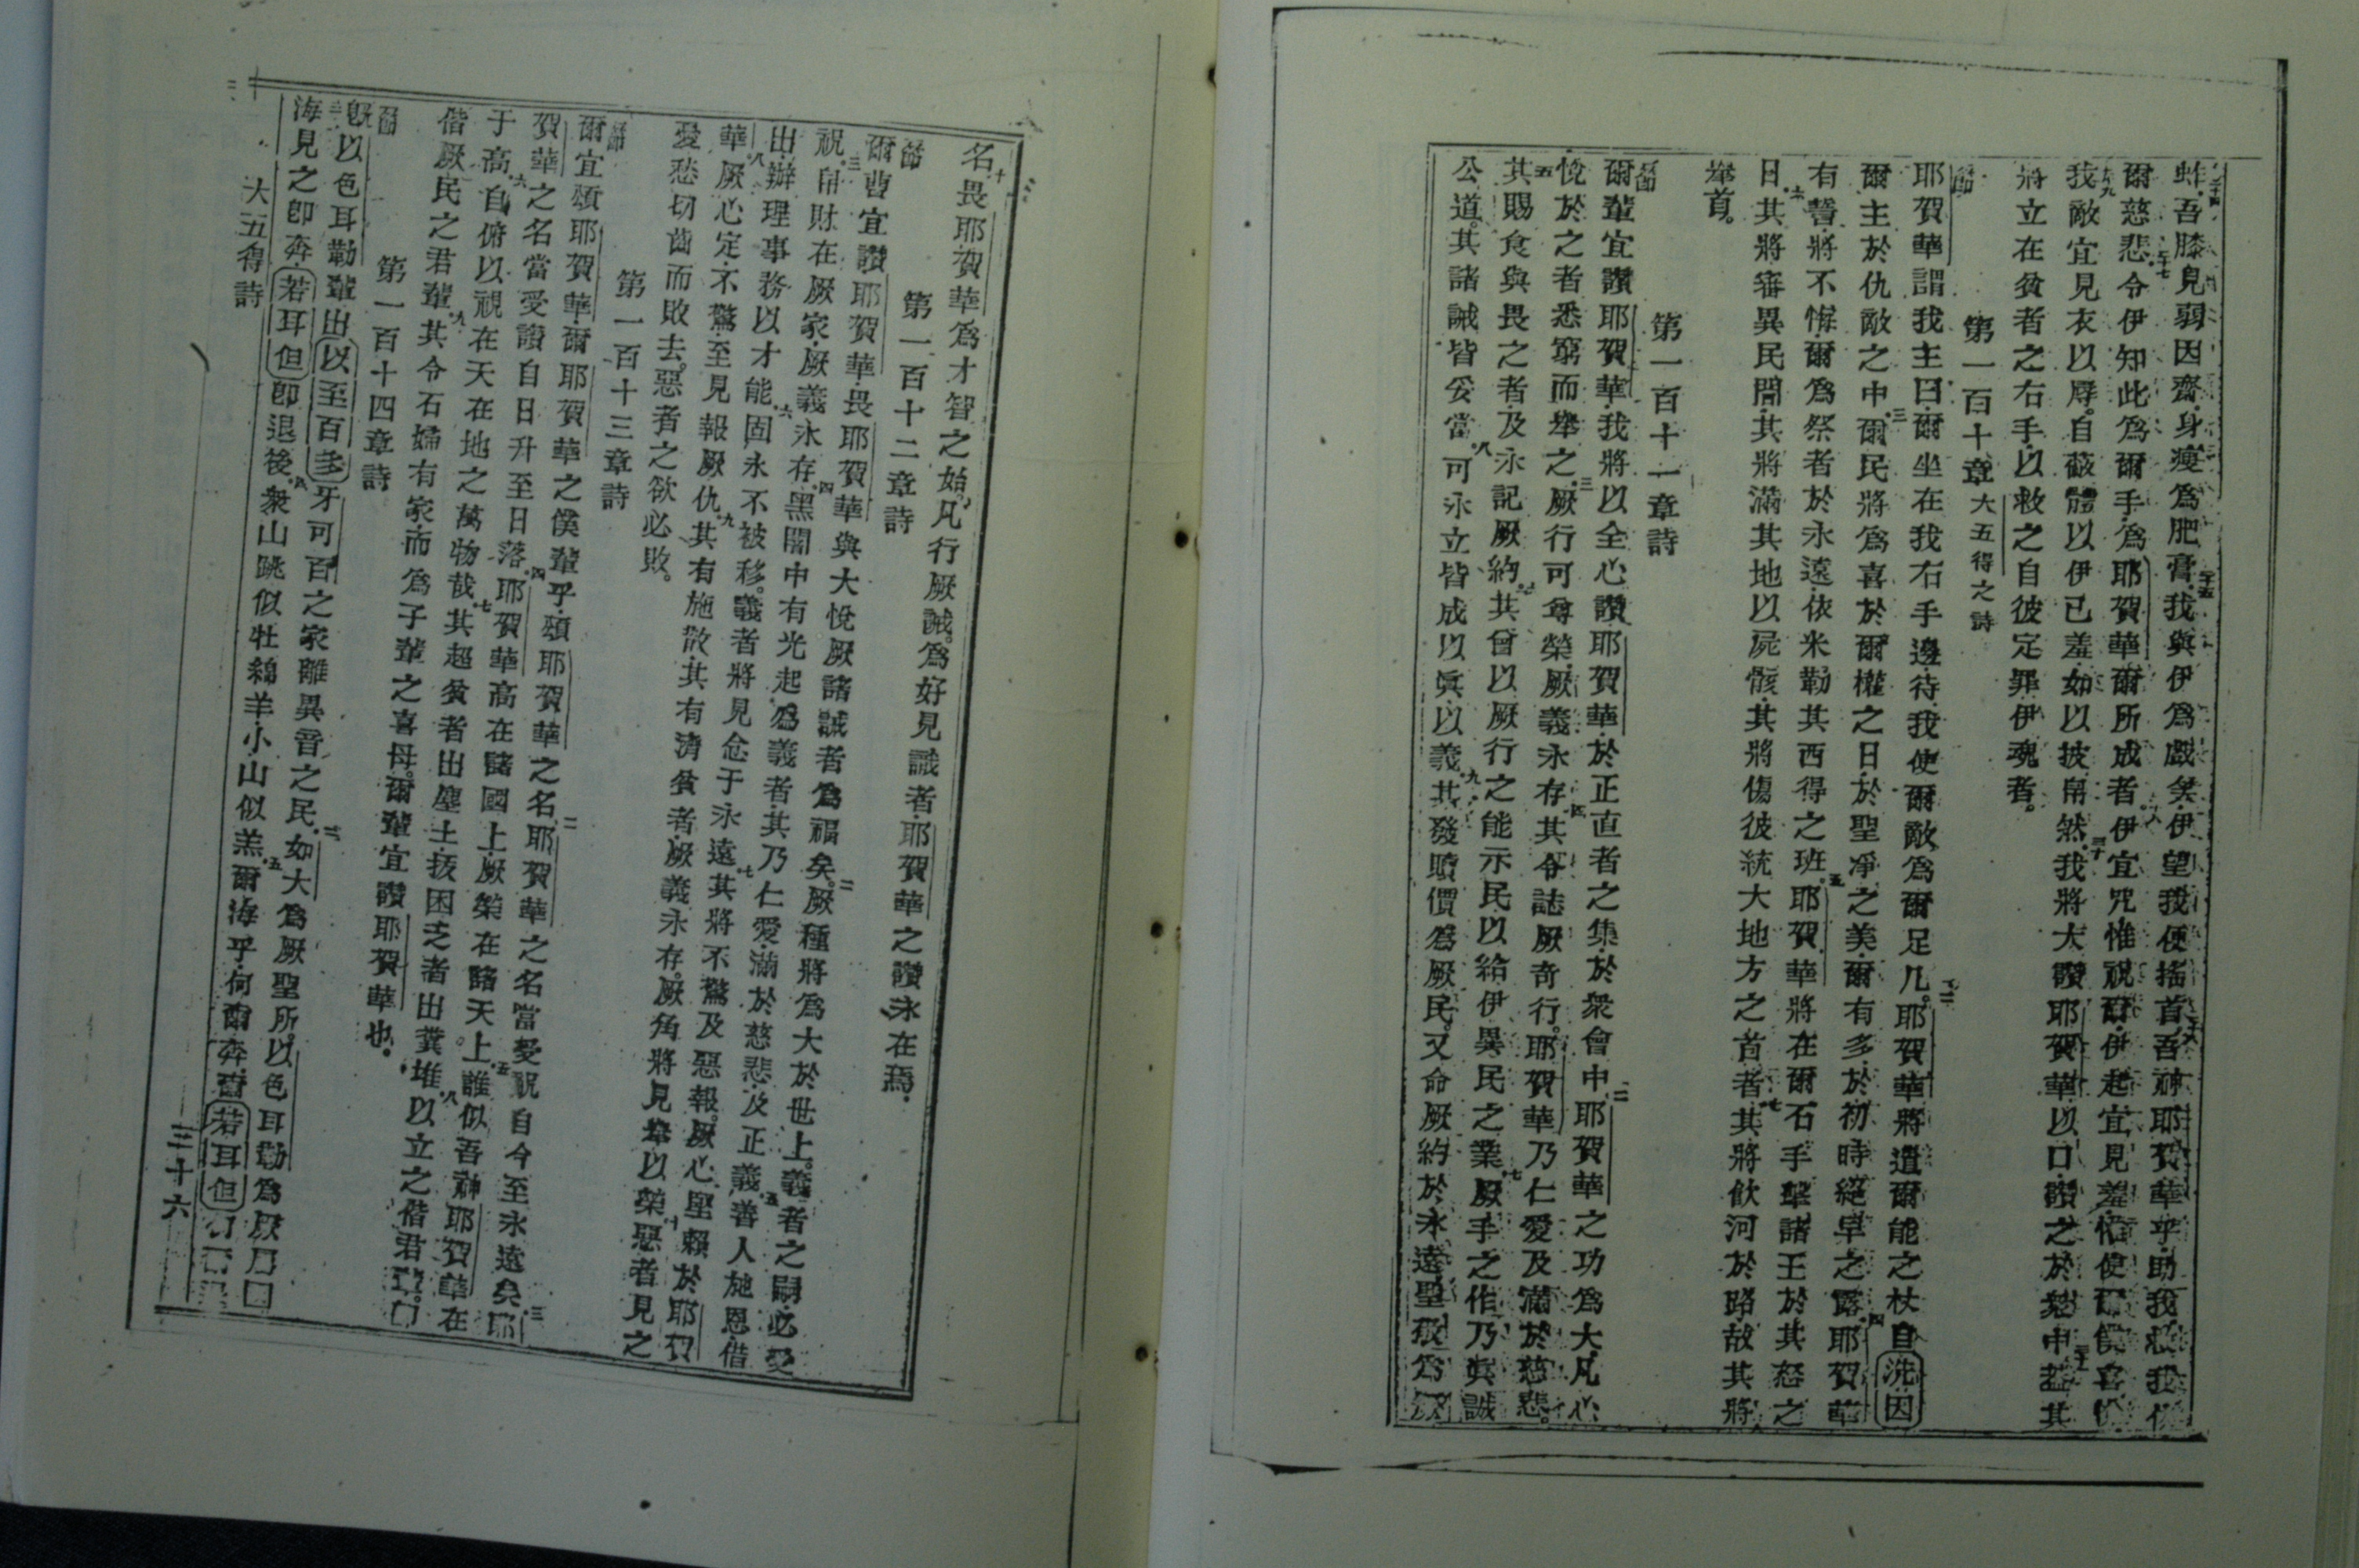 蚱吾膝見弱因齋身瘦爲肥膏我與伊爲戲矣伊望我便搖首吾神耶賀華乎助我救我依
爾慈悲令伊知此爲爾手爲耶賀華爾所成者伊宜咒惟祝爾伊起宜見羞惟使爾僕喜
我敵宜見衣以辱自蔽體以伊已羞如以披帛然我將大讚耶賀華以口讚之於衆中蓋其
將立在貧者之右手以救之自彼定罪伊魂者
第一百十章 大五得之詩
耶賀華謂我主曰爾坐在我右手邊待我使爾敵爲爾足几耶賀華將遣爾能之杖自洗因
爾主於仇敵之中爾民將爲喜於爾權之日於聖淨之美爾有多於初時絕早之露耶賀華
有誓將不悔爾爲祭者於永遠依米勒其西得之班耶賀華將在爾右手擊諸王於其怒之
日其將審異民間其將滿其地以屍骸其將傷彼統大地方之首者其將飲河於路故其將
舉首
第一百十一章詩
爾輩宜讚耶賀華我將以全心讚耶賀華於正直者之集於衆會中耶賀華之功爲大凡心
悅於之者悉窮而舉之厥行可尊榮厥義永存其令誌厥奇行耶賀華乃仁愛及滿於慈悲
其賜食與畏之者及永記厥約其曾以厥行之能示民以給伊異民之業厥手之作乃眞誠
公道其諸誡皆妥當可永立皆成以眞以義其發贖價爲厥民又命厥約於永遠聖敬爲厥
名畏耶賀華爲才智之始凡行厥誡爲好見識者耶賀華之讚永在焉
第一百十二章詩
爾曹宜讚耶賀華畏耶賀華與大悅厥諸誡者爲福矣厥種將爲大於世上義者之嗣必受
祝帛財在厥家厥義永存黑闇中有光起爲義者其乃仁愛滿於慈悲及正義善人施恩借
出辦理事務以才能固永不被移義者將見念于永遠其將不驚及惡報厥心堅賴於耶賀
華厥心定不驚至見報厥仇其有施散其有濟貧者厥義永存厥角將見舉以榮惡者見之
愛愁切齒而敗去惡者之欲必敗
第一百十三章詩
爾宜頌耶賀華爾耶賀華之僕輩乎頌耶賀華之名耶賀華之名當受祝自今至永遠矣耶
賀華之名當受讚自日升至日落耶賀華高在諸國上厥榮在諸天上誰似吾神耶賀華在
于高自俯以視在天在地之萬物哉其超貧者出塵土拔困乏者出糞堆以立之偕君輩
偕厥民之君輩其令石婦有家而爲子輩之喜母爾輩宜讚耶賀華也
第一百十四章詩
以色耳勒輩出以至百多牙可百之家離異音之民如大爲厥聖所以色耳勒爲厥
海見之卽奔若耳但卽退後衆山跳似牡綿羊小山似羔爾海乎何爾奔爾若耳但
大五得詩
三十六